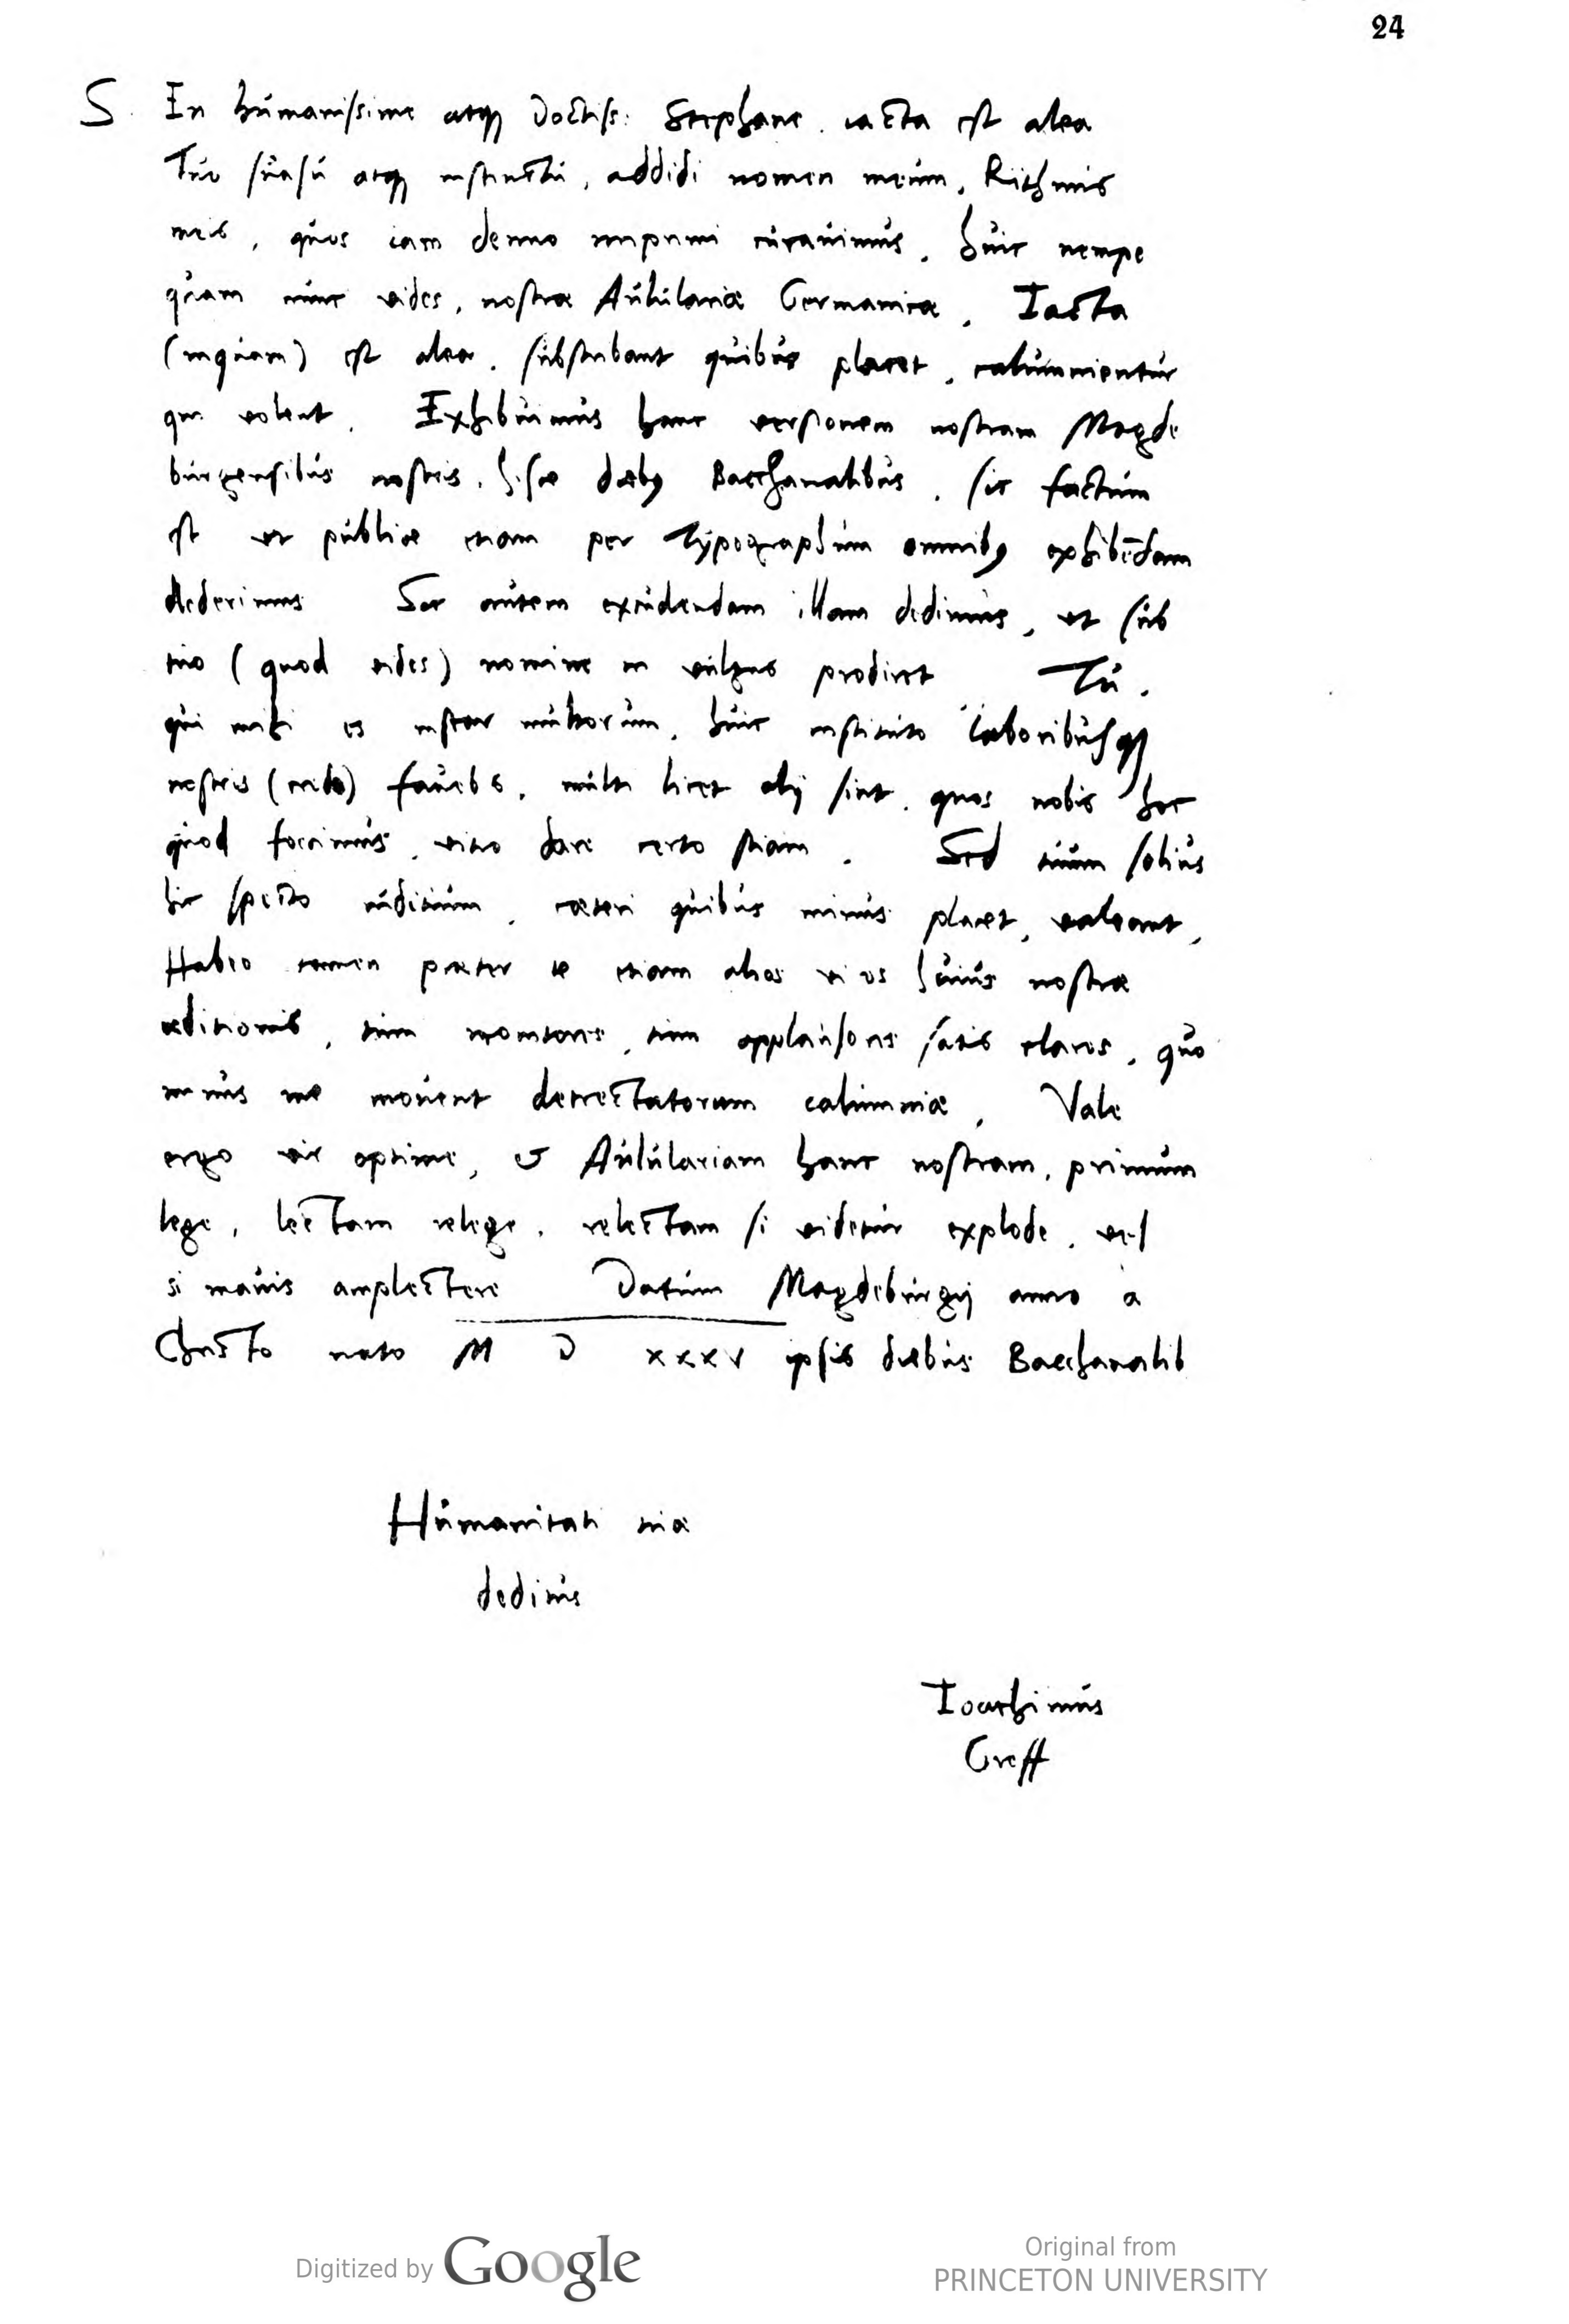 24
S. En humanissime atq; Doctiss: Stephane. iacta est alea
Tuo suasu atq; instinctu, addidi nomen meum, Rithmis
meis, quos iam denuo imprimi curauimus. huic nempe
quam nunc vides, nostræ Aululariæ Germanicæ. Iacta
(inquam) est alea. subscribant quibus placet, calumnientur
qui volent. Exhibuimus hanc versionem nostram Magde
burgensibus nostris, hisce dieb; Bacchanalibus. sic factum
est ut publice etiam per Typographum omnib; exhibēdam
dederimus Sic autem excudendam illam dedimus, ut sub
tuo (quod vides) nomine in vulgus prodiret Tu.
qui mihi es instar multorum, huic instituto laboribusq;
nostris (credo) fauebis. multi licet alij sint. quos nobis hoc
quod facimus, vitio dare certo sciam. Sed tuum solius
hic specto iuditium, cæteri quibus minus placet, valeant,
Habeo tamen præter te etiam alios viros huius nostræ
æditionis, tum tum applausores satis claros. quo
minus me mouent detrectatorum calumniæ, Vale
ergo vir optime, & Aululariam hanc nostram, primum
lege, lectam relege, relectam si videtur explode. vel
si mauis amplectere Datum Magdeburgij anno a
Christo nato M D xxxv ipsis diebus Bacchanalib
Humanitati tuæ
deditus
Ioachimus
Greff
Digitized by Google
Original from
PRINCETON UNIVERSITY